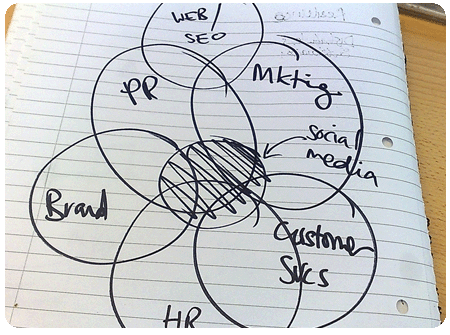 WEB/
SEO
PR
Mktig
social
media
Brand
Customer
Svcs
HR